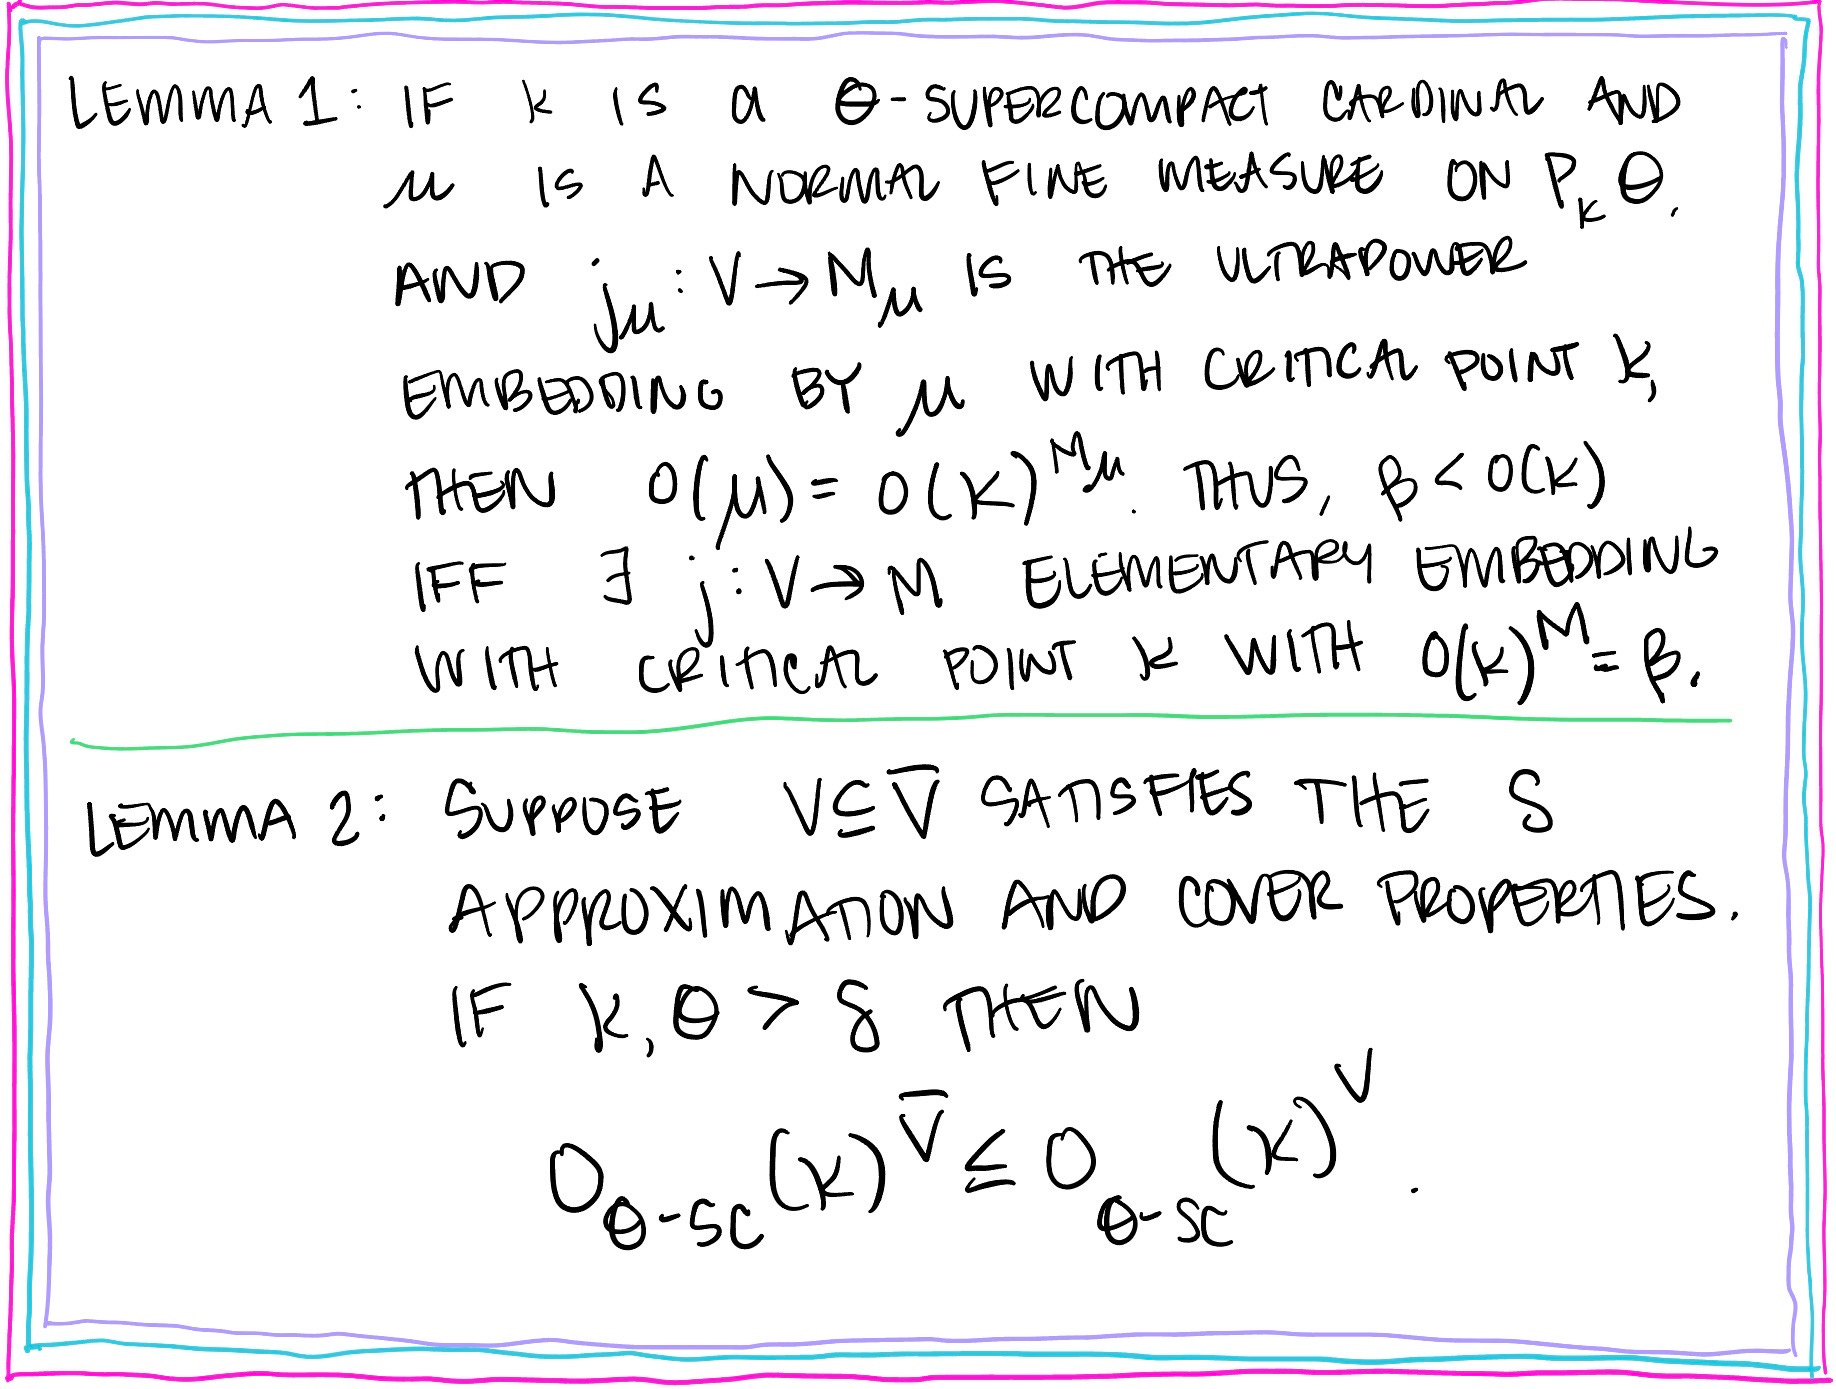 LEMMA 1: IF κ IS A θ-SUPERCOMPACT CARDINAL AND
μ IS A NORMAL FINE MEASURE ON P_κ θ,
AND j_μ : V → M_μ IS THE ULTRAPOWER
EMBEDDING BY μ WITH CRITICAL POINT κ,
THEN O(μ) = O(κ)^{M_μ}. THUS, β < O(κ)
IFF ∃ j : V → M ELEMENTARY EMBEDDING
WITH CRITICAL POINT κ WITH O(κ)^M = β.
LEMMA 2: SUPPOSE V ⊆ V̅ SATISFIES THE δ
APPROXIMATION AND COVER PROPERTIES.
IF κ, θ > δ THEN
O_{θ-SC}(κ)^{V̅} ≤ O_{θ-SC}(κ)^V.